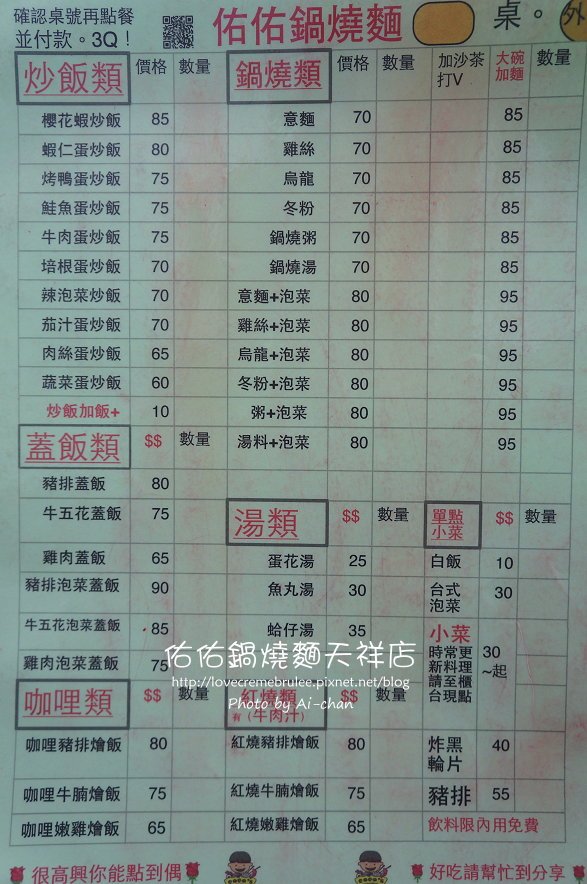 確認桌號再點餐
並付款。3Q！
佑佑鍋燒麵
桌。
外
炒飯類 價格 數量
櫻花蝦炒飯 85
蝦仁蛋炒飯 80
烤鴨蛋炒飯 75
鮭魚蛋炒飯 75
牛肉蛋炒飯 75
培根蛋炒飯 70
辣泡菜炒飯 70
茄汁蛋炒飯 70
肉絲蛋炒飯 65
蔬菜蛋炒飯 60
炒飯加飯+ 10
蓋飯類 $$ 數量
豬排蓋飯 80
牛五花蓋飯 75
雞肉蓋飯 65
豬排泡菜蓋飯 90
牛五花泡菜蓋飯 85
雞肉泡菜蓋飯 75
咖哩類 $$ 數量
咖哩豬排燴飯 80
咖哩牛腩燴飯 75
咖哩嫩雞燴飯 65
鍋燒類 價格 數量 加沙茶打V 大碗加麵 數量
意麵 70 85
雞絲 70 85
烏龍 70 85
冬粉 70 85
鍋燒粥 70 85
鍋燒湯 70 85
意麵+泡菜 80 95
雞絲+泡菜 80 95
烏龍+泡菜 80 95
冬粉+泡菜 80 95
粥+泡菜 80 95
湯料+泡菜 80 95
湯類 $$ 數量
蛋花湯 25
魚丸湯 30
蛤仔湯 35
紅燒類 $$ 數量
有(牛肉汁)
紅燒豬排燴飯 80
紅燒牛腩燴飯 75
紅燒嫩雞燴飯 65
單點
小菜 $$ 數量
白飯 10
台式
泡菜 30
小菜
時常更
新料理
請至櫃
台現點
30
~起
炸黑
輪片 40
豬排 55
飲料限內用免費
佑佑鍋燒麵天祥店
http://lovecremebrulee.pixnet.net/blog
Photo by Ai-chan
很高興你能點到偶
好吃請幫忙到分享